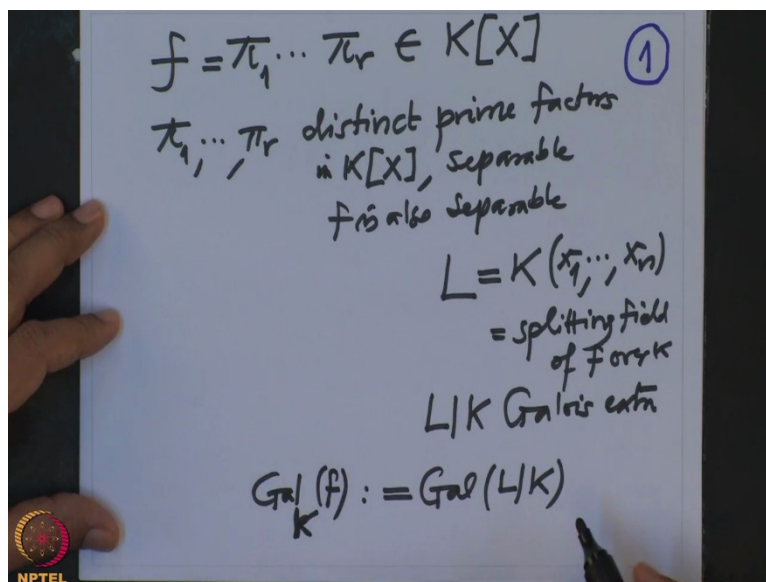 f = π₁ ⋯ πᵣ ∈ K[X]
①
π₁, ⋯, πᵣ distinct prime factors
in K[X], separable
f is also separable
L = K(x₁, ⋯, xₙ)
= splitting field
of f over K
L|K Galois extn
Gal_K (f) := Gal(L|K)
NPTEL